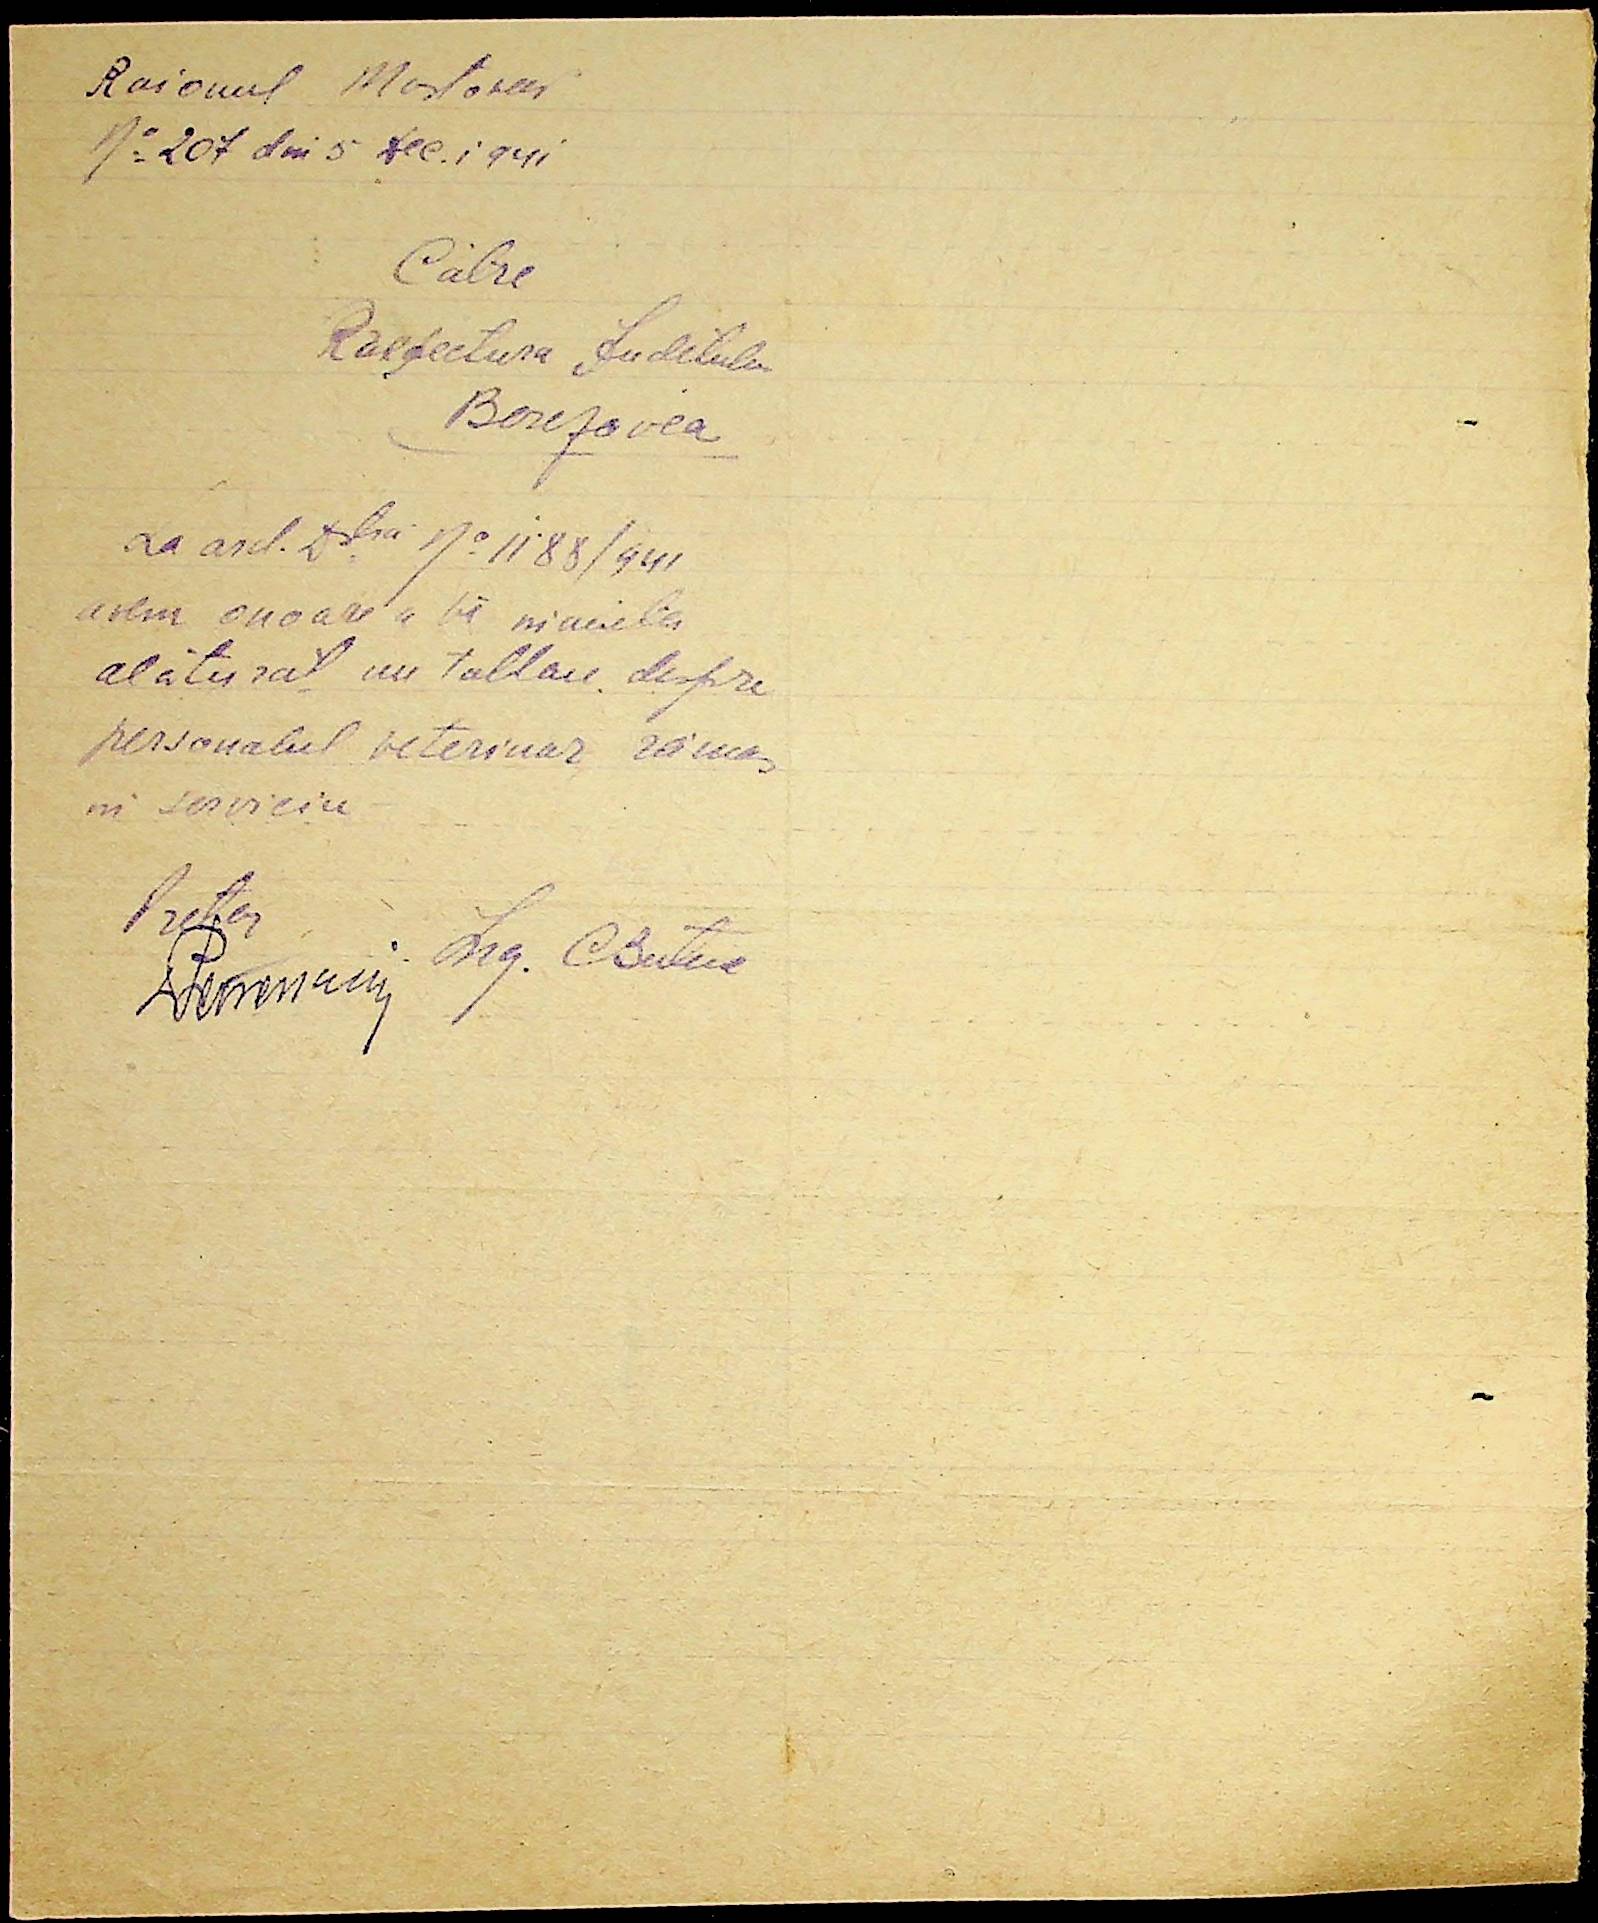 Raionul Mostovoi
No 207 din 5 Dec. 1941
Către
Judetului
Berezovca
La ord. Dvtră No 1188/941
avem onoare a vă
alăturat un tablou despre
personalul veterinar rămas
in serviciu
Pretor
Ing.